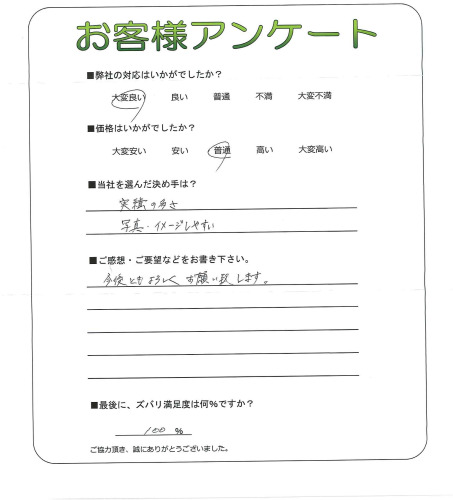 お客様アンケート
■弊社の対応はいかがでしたか？
大変良い 良い 普通 不満 大変不満
■価格はいかがでしたか？
大変安い 安い 普通 高い 大変高い
■当社を選んだ決め手は？
実績の多さ
写真・イメージしやすい
■ご感想・ご要望などをお書き下さい。
今後ともよろしくお願い致します。
■最後に、ズバリ満足度は何％ですか？
100 ％
ご協力頂き、誠にありがとうございました。